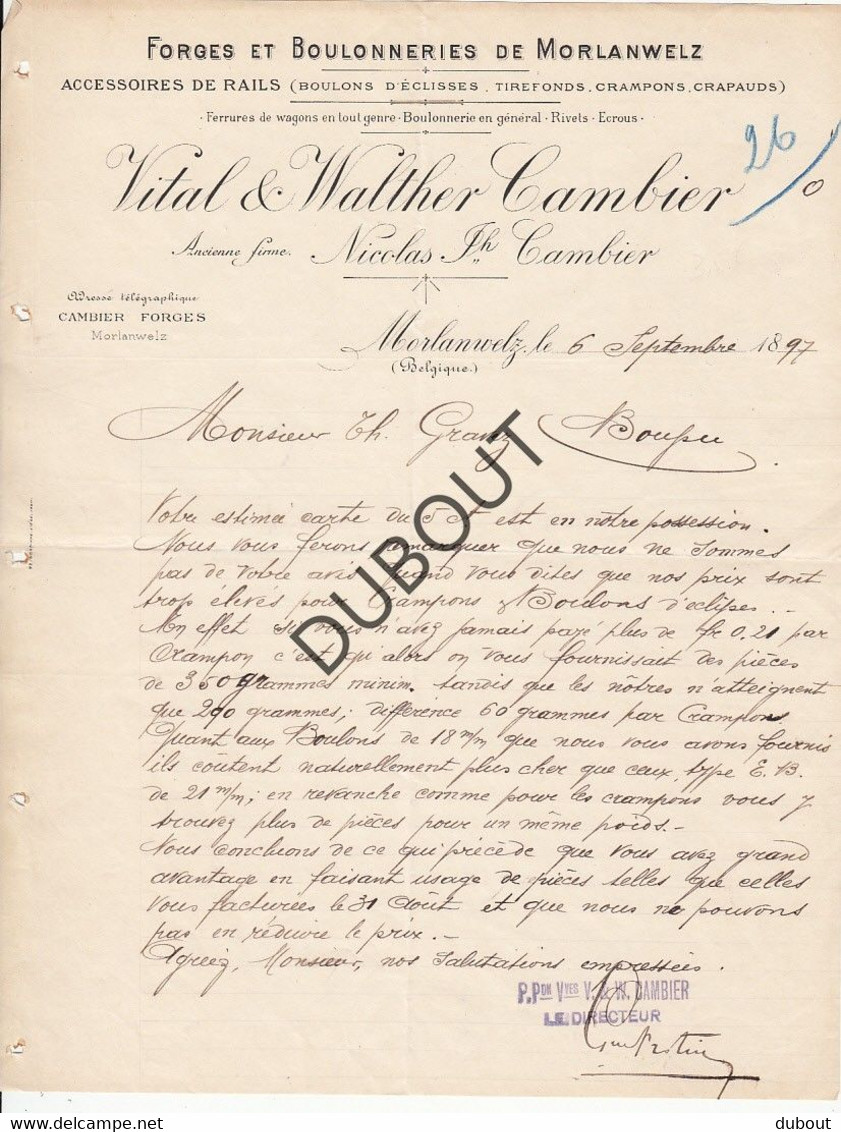 FORGES ET BOULONNERIES DE MORLANWELZ
ACCESSOIRES DE RAILS (BOULONS D'ÉCLISSES, TIREFONDS, CRAMPONS, CRAPAUDS)
Ferrures de wagons en tout genre - Boulonnerie en général - Rivets - Ecrous -
26
Vital & Walther Cambier
Ancienne firme. Nicolas Jh Cambier
Adresse télégraphique
CAMBIER FORGES
Morlanwelz
Morlanwelz, le 6 Septembre 1897
(Belgique.)
Monsieur Th. Boussu
Votre estimée carte du 5 Ct est en notre possession.
Nous vous ferons remarquer que nous ne sommes
pas de votre avis quand vous dites que nos prix sont
trop élevés pour Crampons & Boulons d'éclipes. -
En effet si vous n'avez jamais payé plus de fr 0,21 par
Crampon c'est qu'alors on vous fournissait des pièces
de 350 grammes minim. tandis que les nôtres n'atteignent
que 290 grammes; différence 60 grammes par Crampons.
Quant aux Boulons de 18 m/m que nous vous avons fournis
ils coûtent naturellement plus cher que ceux, type E.B.
de 21 m/m; en revanche comme pour les crampons vous y
trouvez plus de pièces pour un même poids. -
Nous concluons de ce qui précède que vous avez grand
avantage en faisant usage de pièces telles que celles
vous facturées le 31 Août et que nous ne pouvons
pas en réduire le prix. -
Agréez, Monsieur, nos salutations empressées.
P. PON VVES V. & W. CAMBIER
LE DIRECTEUR
DUBOUT
delcampe.net
dubout